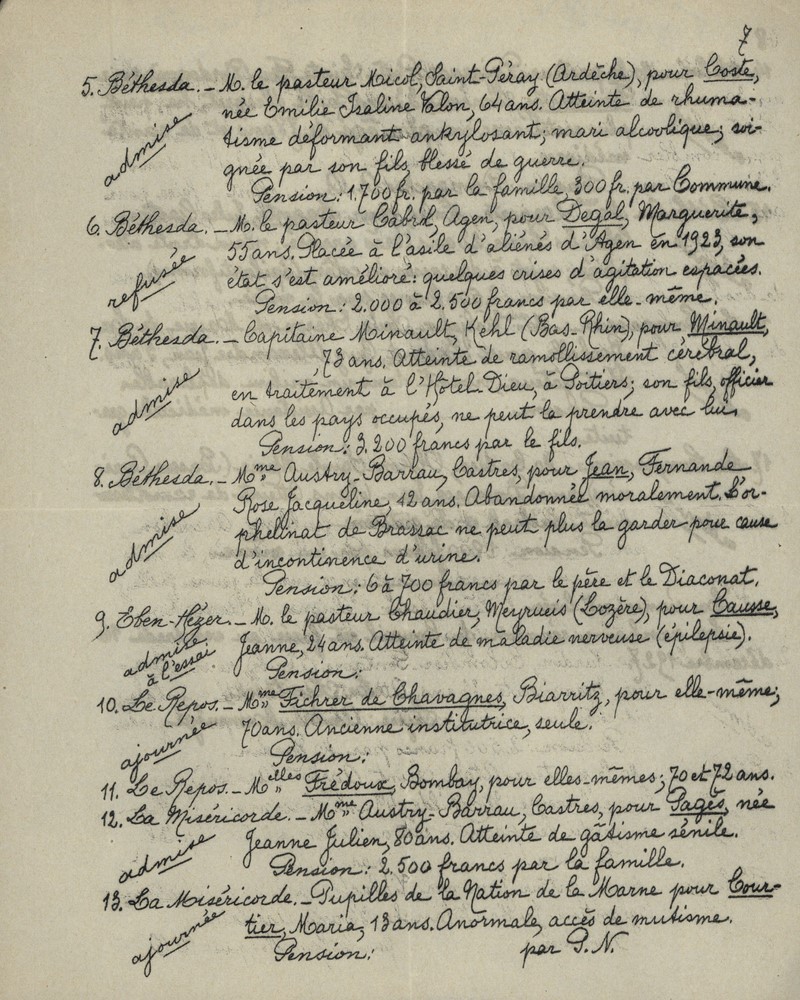 7
5. Béthesda. - M. le pasteur Micol, Saint-Péray (Ardèche), pour Coste,
née Emilie Isaline Valon, 64 ans. Atteinte de rhuma-
admise
tisme déformant ankylosant; mari alcoolique; soi-
gnée par son fils, blessé de guerre.
Pension: 1.700 fr. par la famille, 300 fr. par Commune.
6. Béthesda. - M. le pasteur Cabrol, Agen, pour Degal, Marguerite,
55 ans. Placée à l'asile d'aliénés d'Agen en 1923, son
refusée
état s'est amélioré: quelques crises d'agitation espacées.
Pension: 2.000 à 2.500 francs par elle-même.
7. Béthesda. - Capitaine Minault, Kehl (Bas-Rhin), pour Minault,
, 73 ans. Atteinte de ramollissement cérébral,
admise
en traitement à l'Hôtel-Dieu, à Poitiers; son fils, officier
dans les pays occupés, ne peut la prendre avec lui.
Pension: 3.200 francs par le fils.
8. Béthesda. - Mme Austry-Barrau, Castres, pour Jean, Fernande
Rose Jacqueline, 12 ans. Abandonnée moralement. L'or-
admise
phelinat de Brassac ne peut plus la garder pour cause
d'incontinence d'urine.
Pension: 6 à 700 francs par le père et le Diaconat.
9. Eben-Hézer. - M. le pasteur Chaudier, Meyrueis (Lozère), pour Causse,
Jeanne, 24 ans. Atteinte de maladie nerveuse (épilepsie).
admise
à l'essai
Pension:
10. Le Repos. - Mme Fichrer de Chavagnes, Biarritz, pour elle-même;
70 ans. Ancienne institutrice, seule.
ajournée
Pension:
11. Le Repos. - Melles Frédoux, Bombay, pour elles-mêmes; 70 et 72 ans.
12. La Miséricorde. - Mme Austry-Barrau, Castres, pour Pagès, née
Jeanne Julien, 80 ans. Atteinte de gâtisme sénile.
admise
Pension: 2.500 francs par la famille.
13. La Miséricorde. - Pupilles de la Nation de la Marne pour Cour-
tier, Maria, 13 ans. Anormale, accès de mutisme.
ajournée
Pension: par P. N.